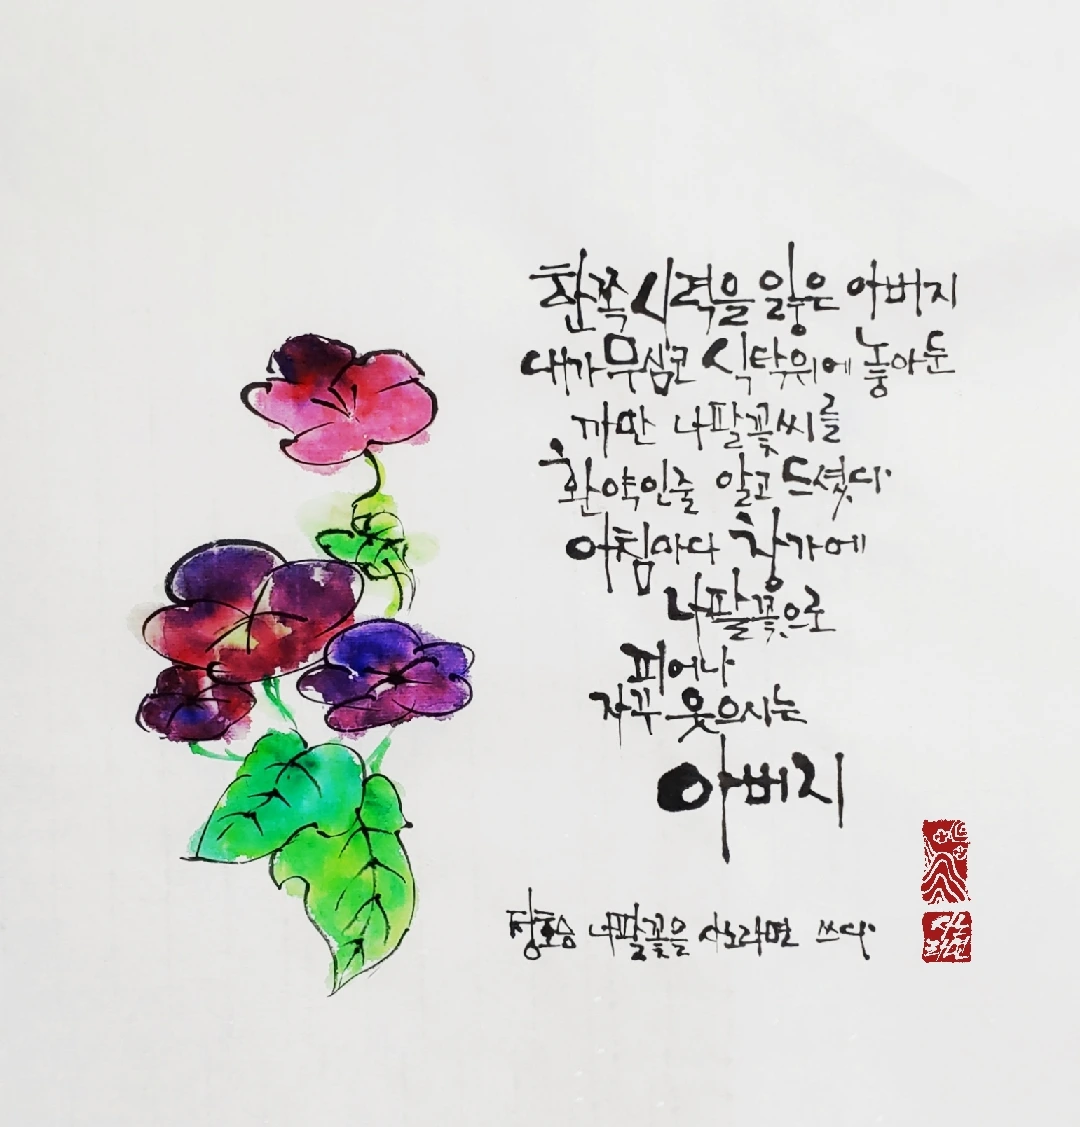 한쪽 시력을 잃은 아버지
내가 무심코 식탁위에 놓아둔
까만 나팔꽃씨를
환약인줄 알고 드셨다
아침마다 창가에
나팔꽃으로
피어나
자꾸 웃으시는
아버지
정호승 나팔꽃을 산라면 쓰다
라면